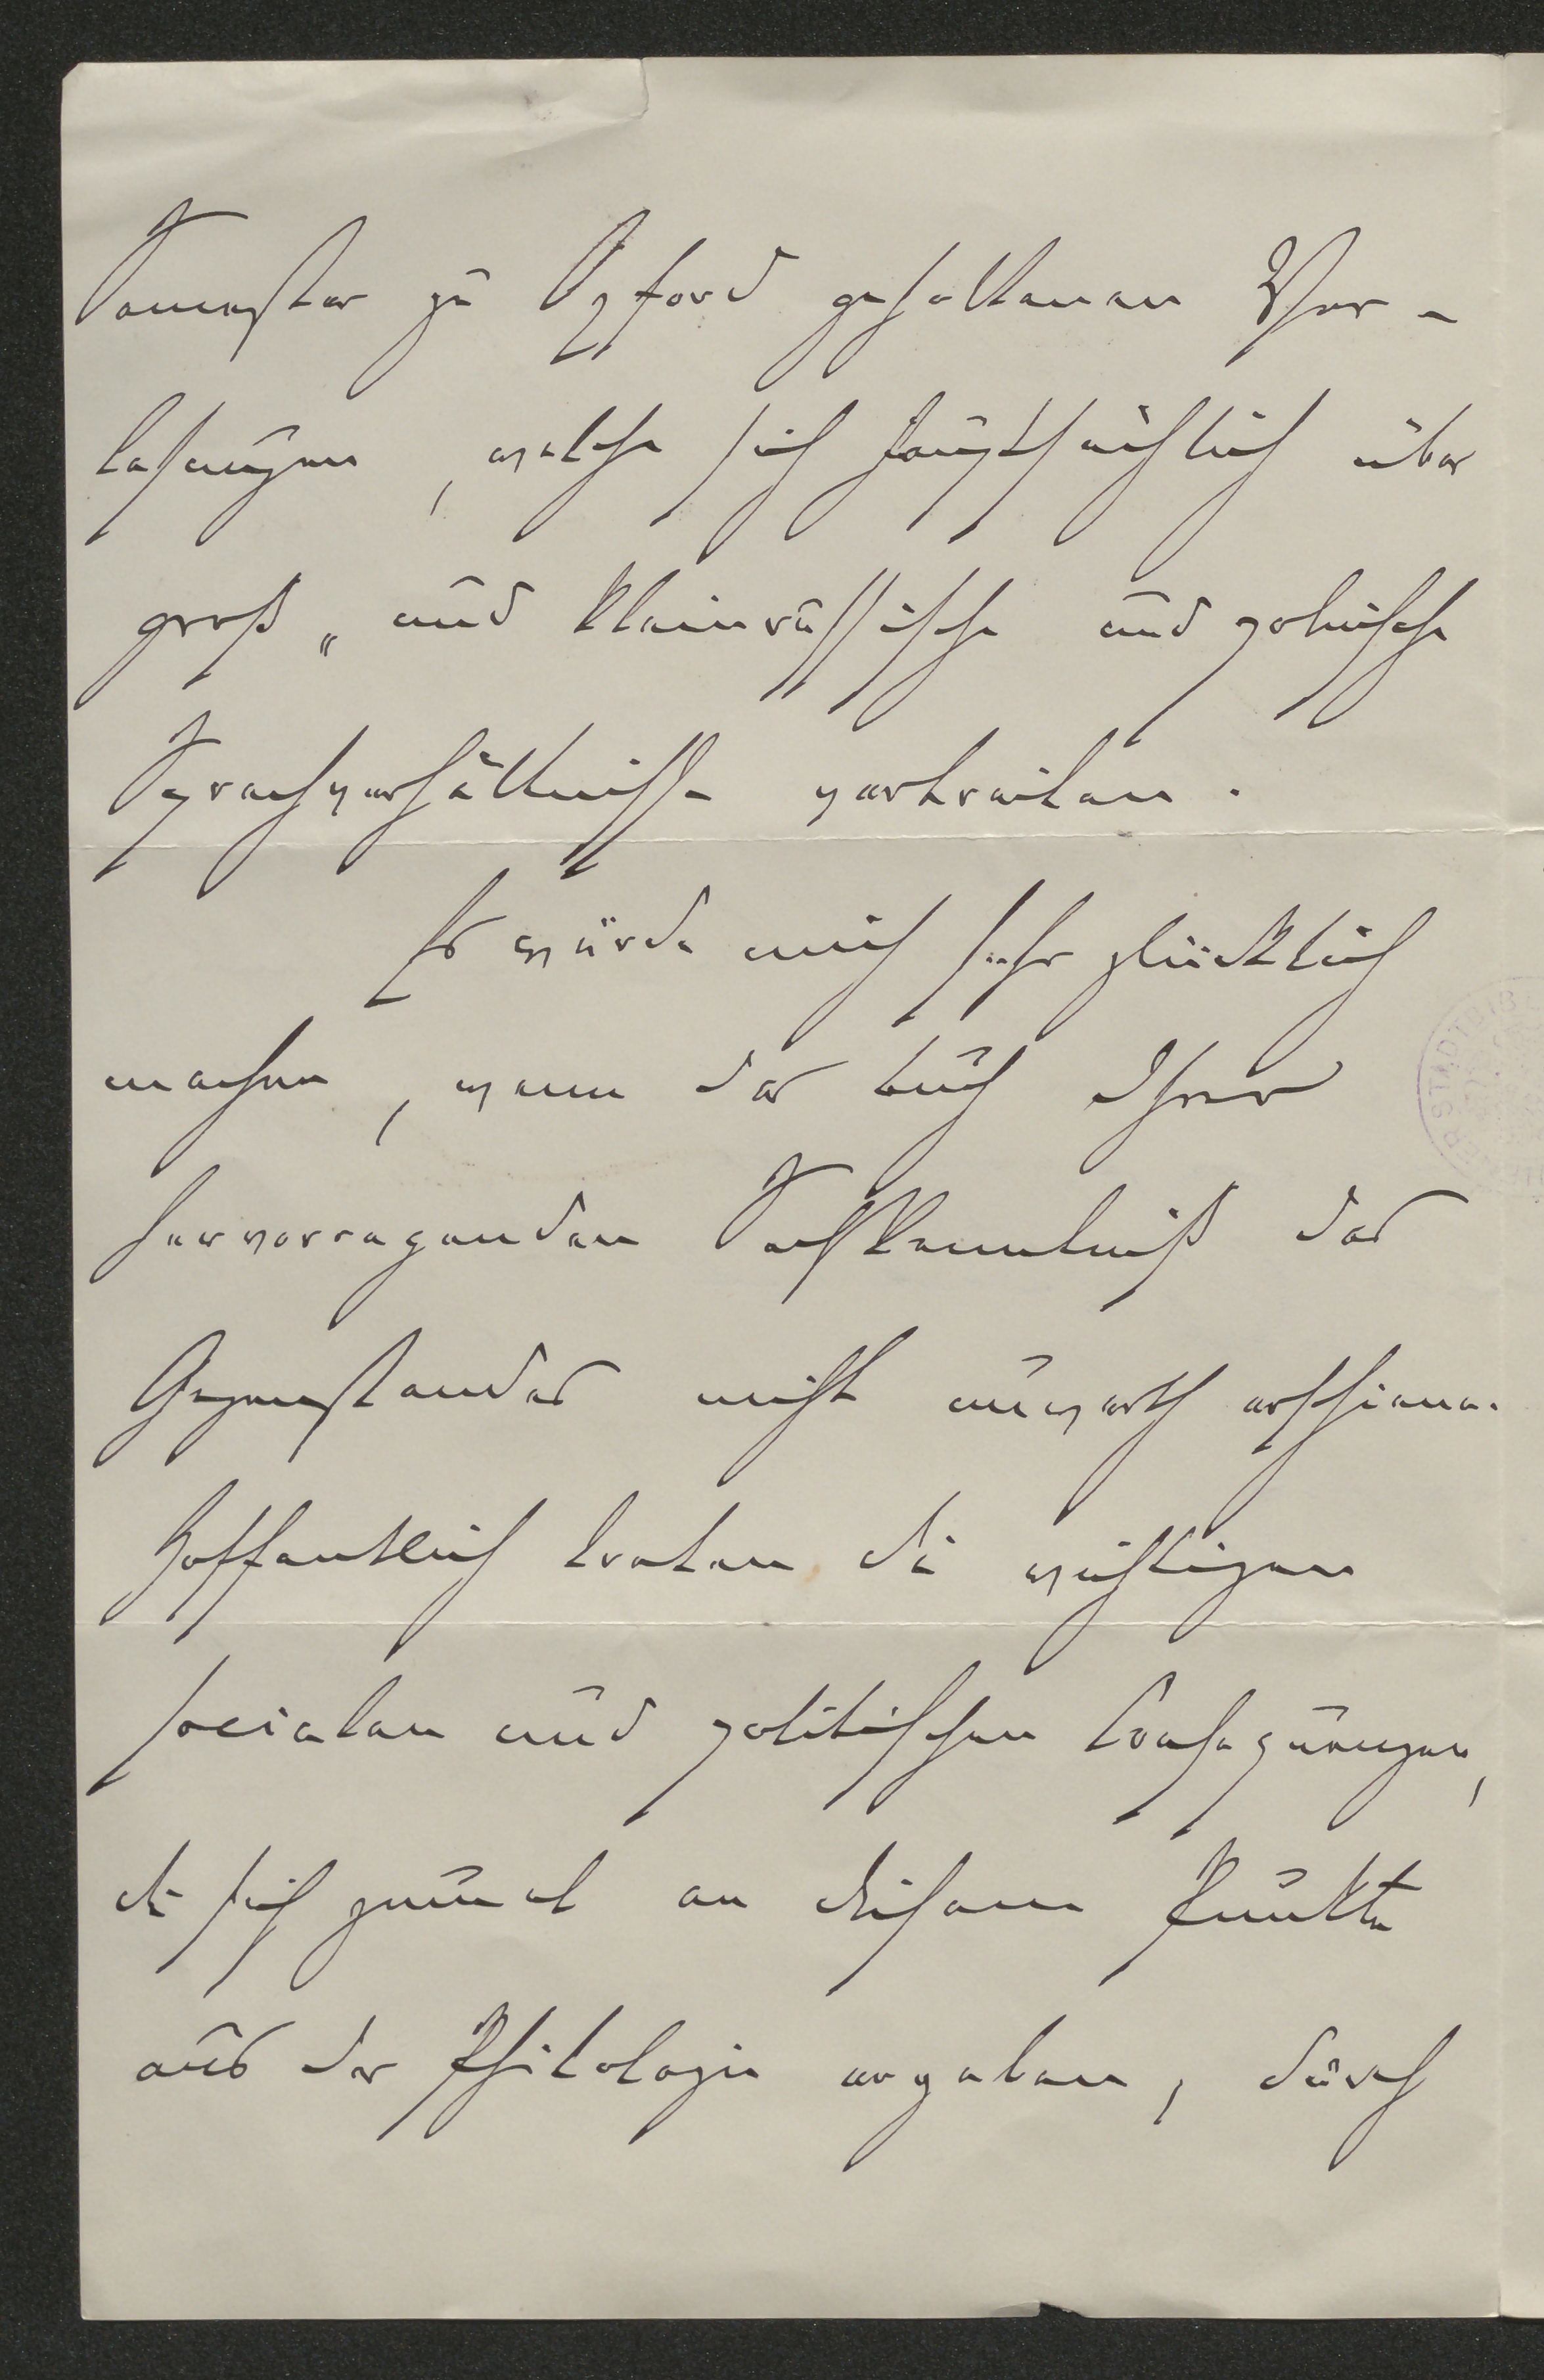 Semester zu Oxford gehaltenen Vor-
lesungen, welche sich hauptsächlich über
groß- und kleinrussische und polnische
Sprachverhältnisse verbreiten.
Es würde mich sehr glücklich
machen, wenn das Buch Ihrer
hervorragenden Sachkenntniß des
Gegenstandes nicht unwerth erschiene.
Hoffentlich treten die wichtigen
socialen und politischen Consequenzen,
die sich zumal an diesem Punkte
aus der Philologie ergeben, durch